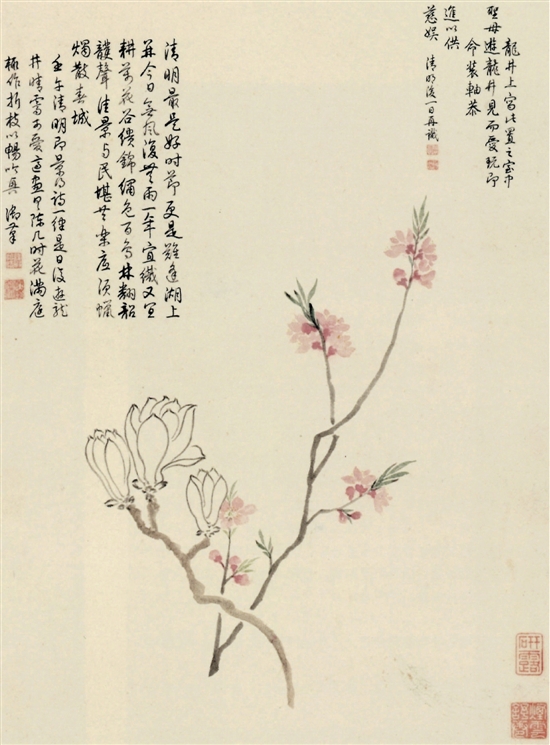 龍井上寫此置之室中
聖母遊龍井見而愛玩即
命裝軸恭
進以供
慈娛 清明後一日再識
清明最是好時節更是難逢湖上
并今日無風復無雨一年宜織又宜
耕萬花谷繢錦綢色百鳥林翻韶
頀聲佳景與民堪共樂底須蠟
燭散春城
壬午清明即景得詩一律是日復遊龍
井晴霽可愛適畫具陳几時花滿庭
極作折枝以暢吟興 御筆
研露